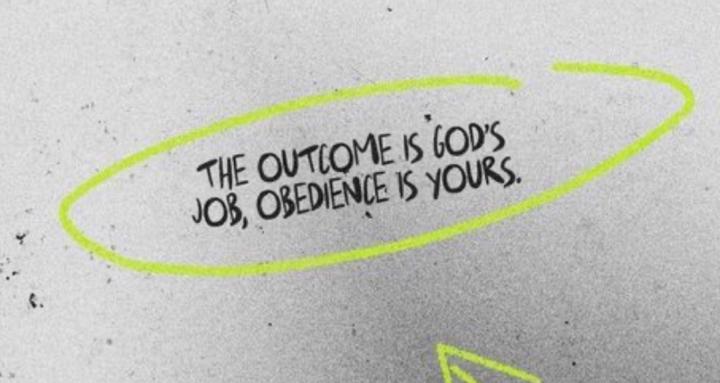 THE OUTCOME IS GOD'S
JOB, OBEDIENCE IS YOURS.